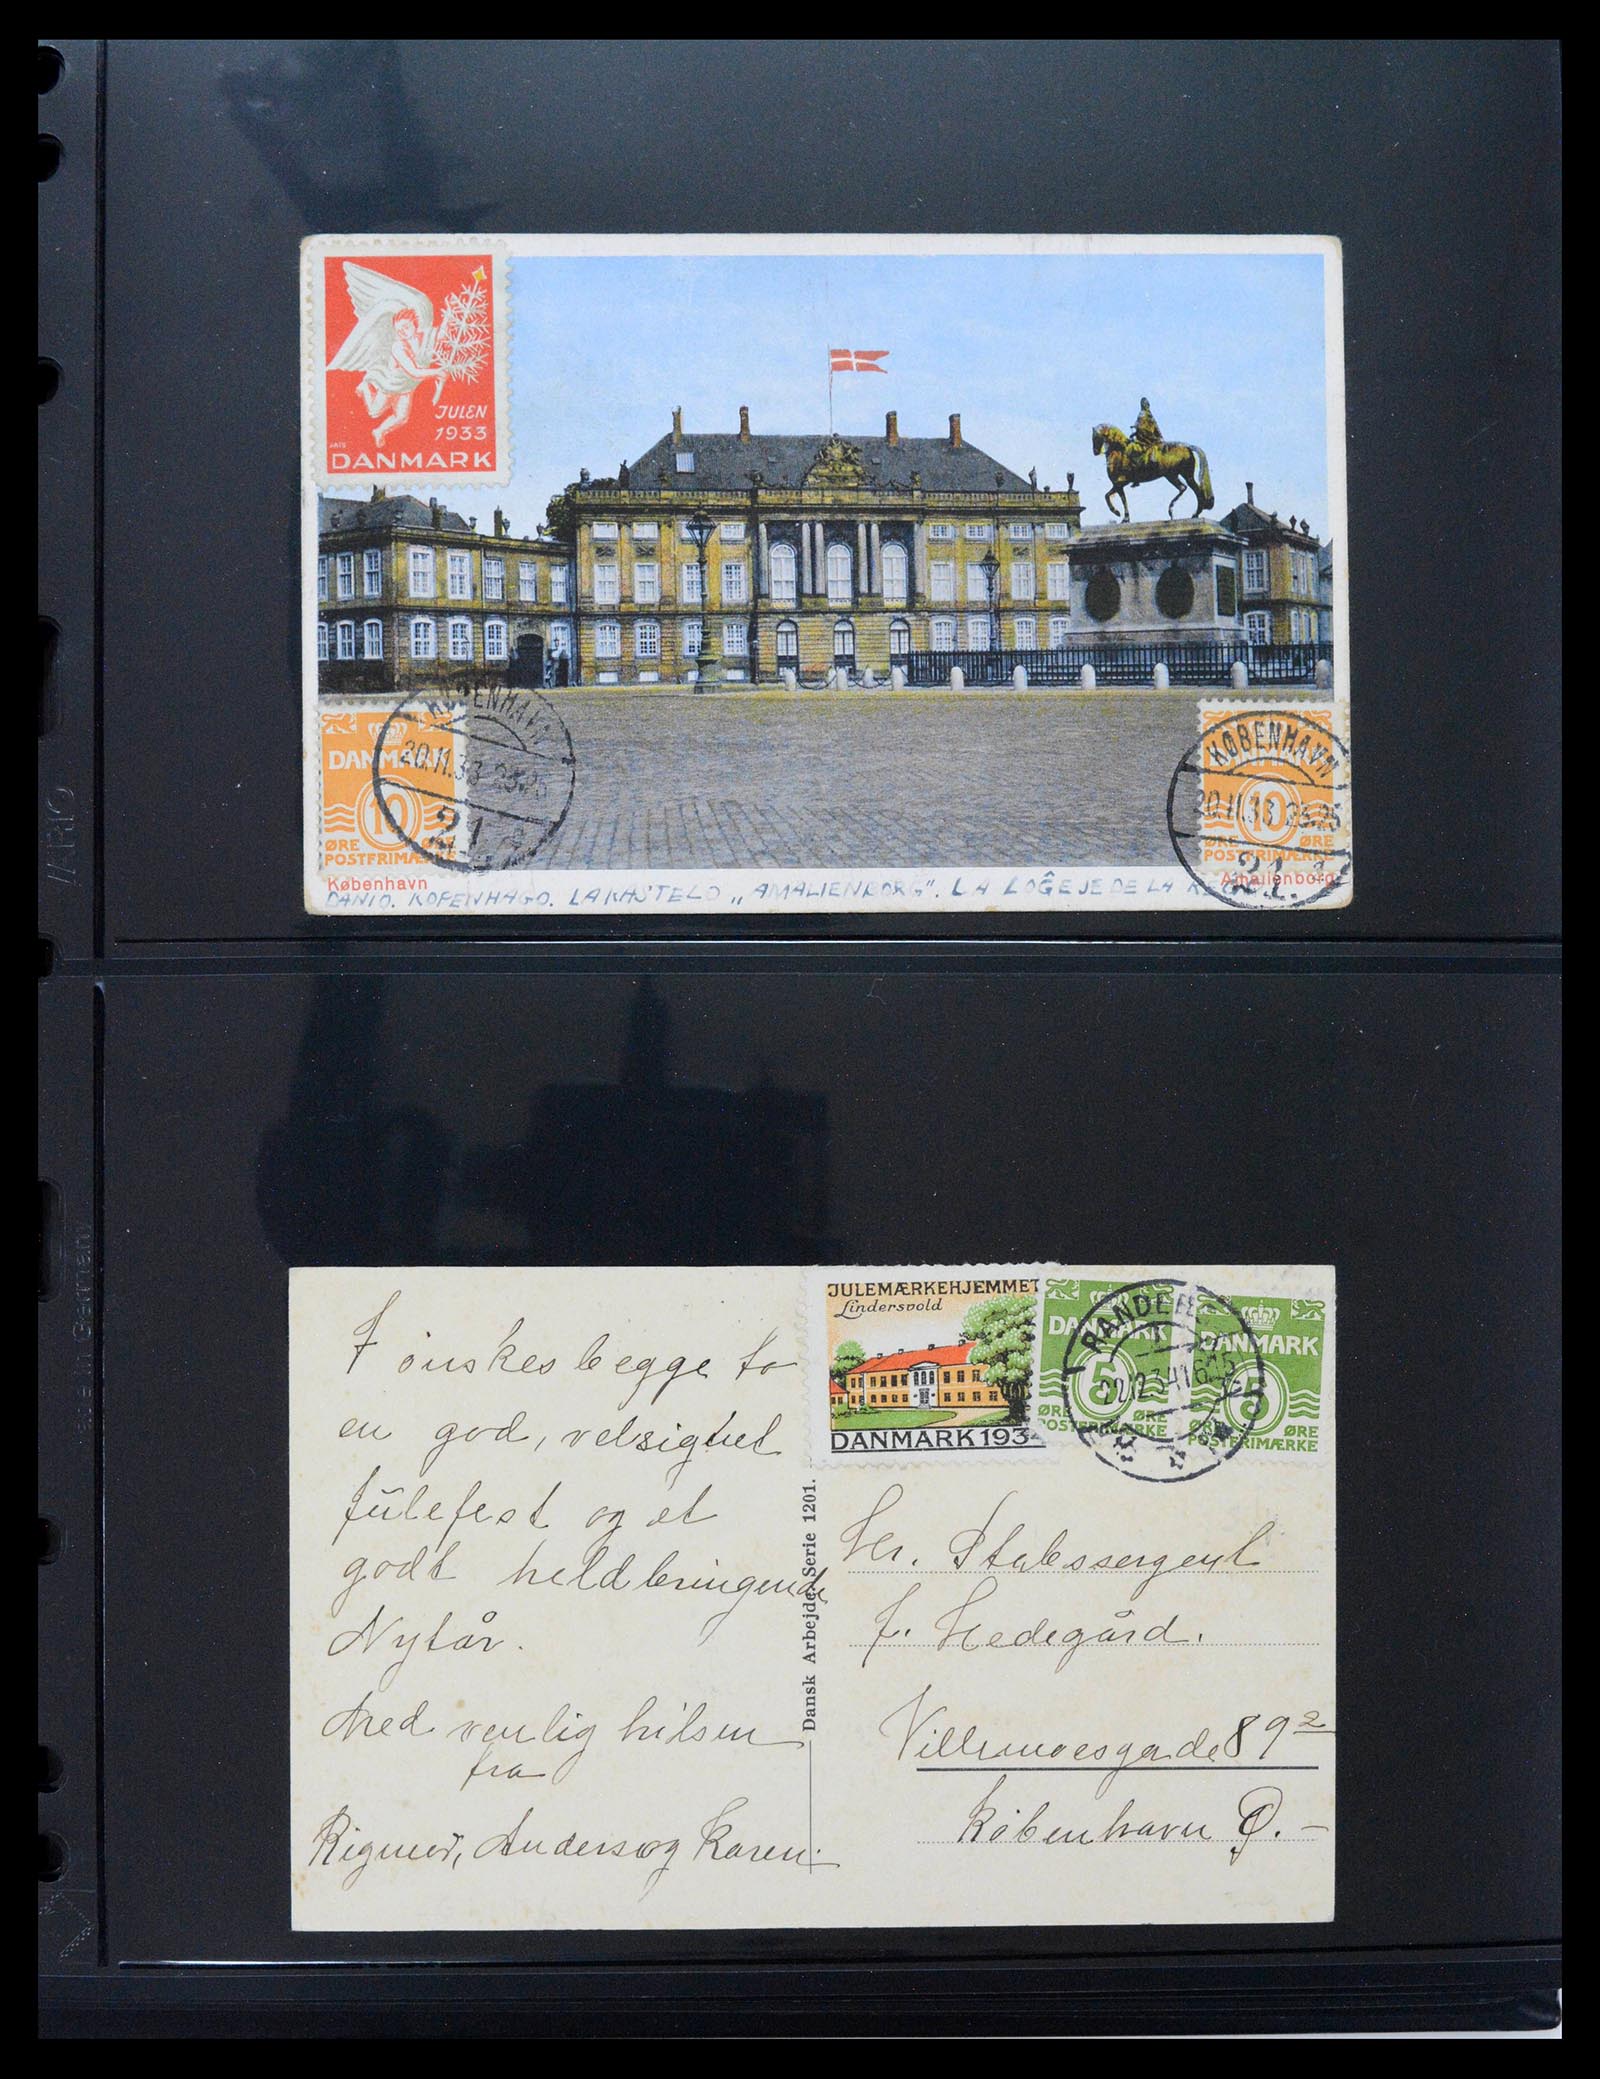 JULEN
1933
DANMARK
KØBENHAVN
20.11.33 23.25
21
DANMARK
10
ØRE ØRE
POSTFRIMÆRKE
KØBENHAVN
20.11.33 23.25
21.
DANMARK
10
ØRE ØRE
POSTFRIMÆRKE
København
Amalienborg
DANIO. KOPENHAGO. LA KASTELO „AMALIENBORG". LA LOĜEJE DE LA
JULEMÆRKEHJEMMET
Lindersvold
DANMARK 193
DANMARK
5
ØRE ØRE
POSTFRIMÆRKE
RANDERS
22.12.34 16
DANMARK
5
ØRE ØRE
POSTFRIMÆRKE
I ønskes begge to
en god, velsignet
Julefest og et
godt heldbringende
Nytår.
Med venlig hilsen
fra
Rigmor, Anders og Karen.
Dansk Arbejde. Serie 1201.
Hr. Stabssergent
f. Hedegård.
Villemoesgade 89 2
København Ø.